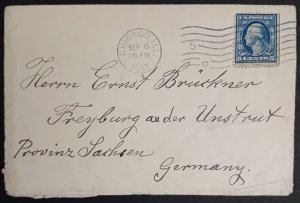 CHICAGO, ILL.
SEP 6
5
U.S. POSTAGE
5 CENTS 5
Herrn Ernst Brückner
Freyburg an der Unstrut
Provinz Sachsen
Germany.